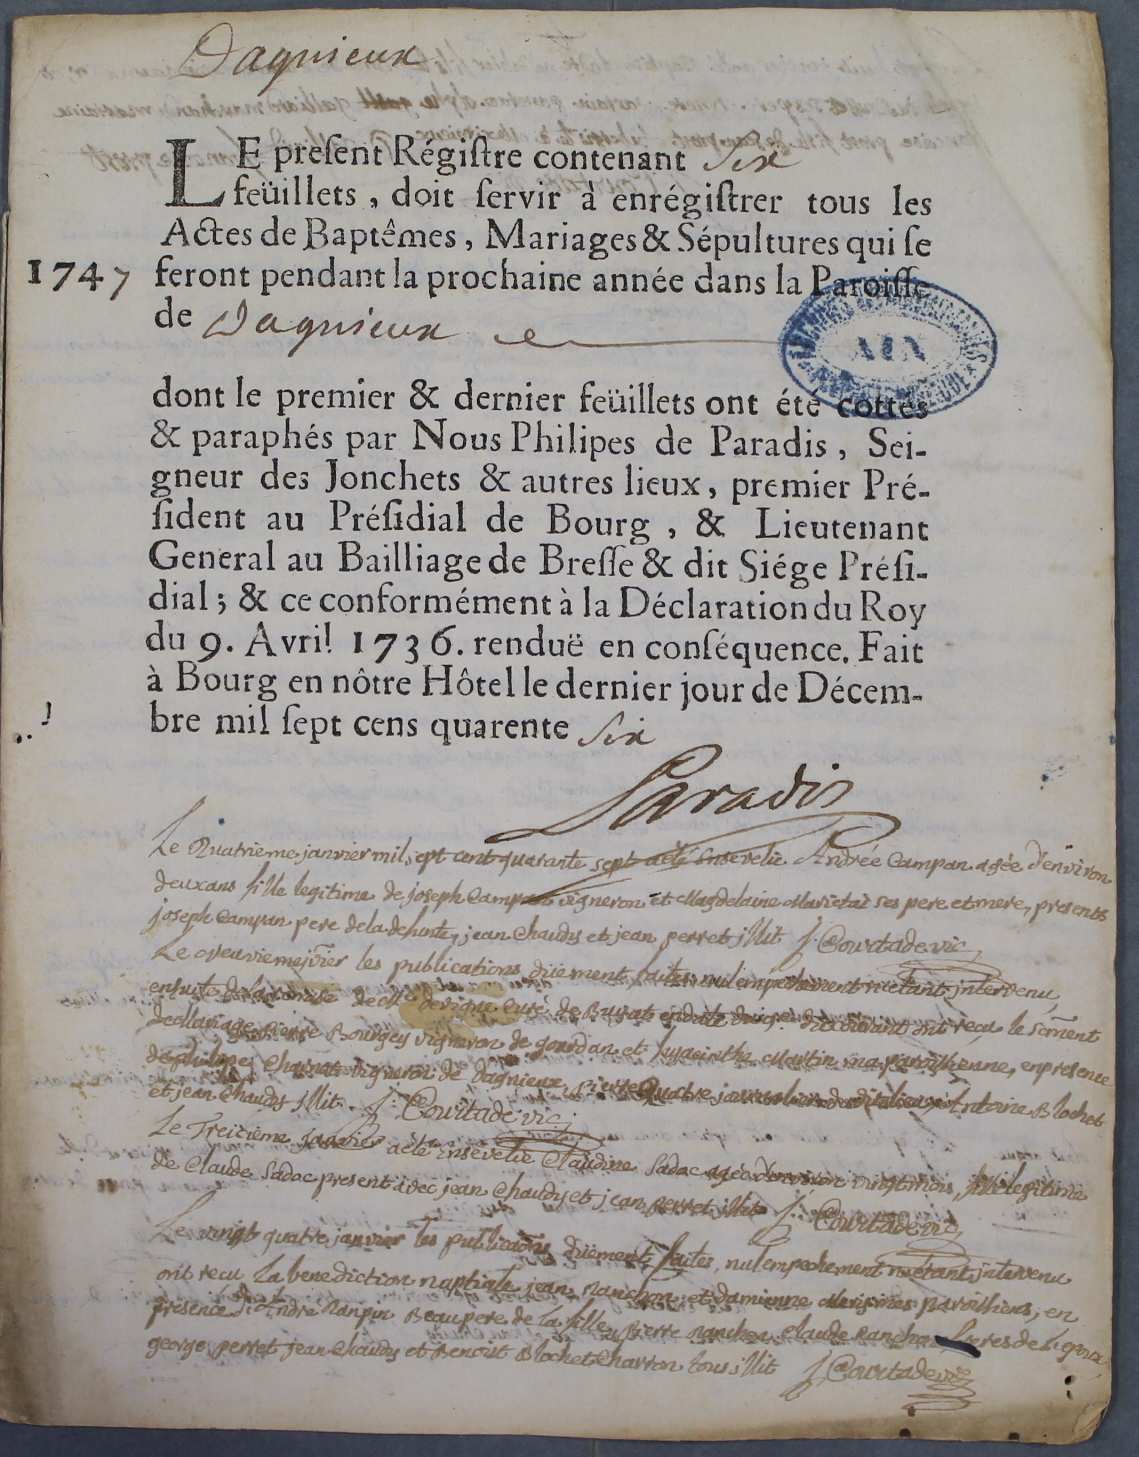 Dagnieux
LE present Régistre contenant six
feüillets, doit servir à enrégistrer tous les
Actes de Baptêmes, Mariages & Sépultures qui se
1747 feront pendant la prochaine année dans la Paroisse
de Dagnieux
AIN
dont le premier & dernier feüillets ont été cottés
& paraphés par Nous Philipes de Paradis, Sei-
gneur des Jonchets & autres lieux, premier Pré-
sident au Présidial de Bourg, & Lieutenant
General au Bailliage de Bresse & dit Siége Prési-
dial; & ce conformément à la Déclaration du Roy
du 9. Avril 1736. renduë en conséquence. Fait
à Bourg en nôtre Hôtel le dernier jour de Décem-
bre mil sept cens quarente six
Paradis
Le Quatrieme janvier mil sept cent quarante sept a eté Ensevelie Andrée Campan agée d'environ
deux ans fille legitime de joseph Campan vigneron et Magdelaine Marietat ses pere et mere, presents
joseph Campan pere de la defunte, jean Chaudy et jean perret illit J. Courtade vic,
Le neuvieme jvier les publications düement faites nul empechement n'etant intervenu
ensuite de la remise de Mre devigne Curé de en datte du dit Courant ont reçu le Sacment
de Mariage pierre Bourgey vigneron de jourdan et hyacinthe Martin ma paroissienne, en presence
de philipes Charnat vigneron de Dagnieux, pierre Quatre Antoine Blochet
et jean Chaudy illit. J. Courtade vic,
Le Treicieme Janvier a eté ensevelie Claudine Sadac agée d'environ vingt mois, fille legitime
de Claude Sadac present avec jean Chaudy et jean perret illit J. Courtade vic,
Le vingt quatre janvier les publications düement faites, nul empechement n'etant intervenu
ont recu La benediction nuptiale jean Ranchon et damienne mes paroissiens, en
presence d'Andre Beaupere de La fille, pierre Ranchon, Claude Ranchon freres de L'epoux,
george perret jean Chaudy et Benoit Blochet Charron tous illit J. Courtade vic